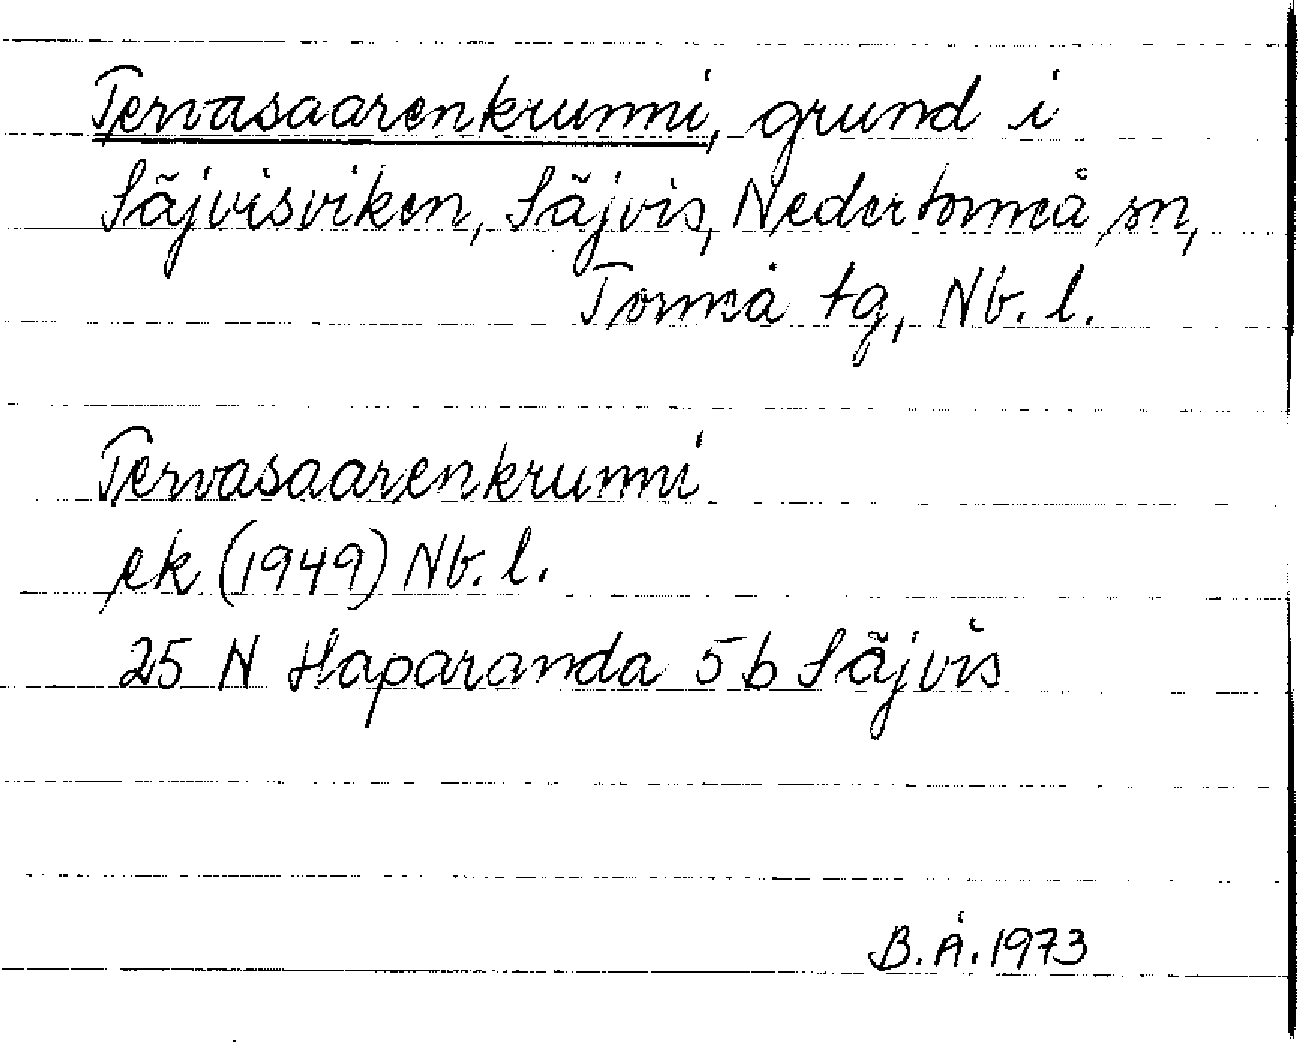 Tervasaarenkrunni, grund i
Säjvisviken, Säjvis, Nedertorneå sn,
Torneå tg, Nb. l.
Tervasaarenkrunni
ek (1949) Nb. l.
25 N Haparanda 5 b Säjvis
B. Å. 1973